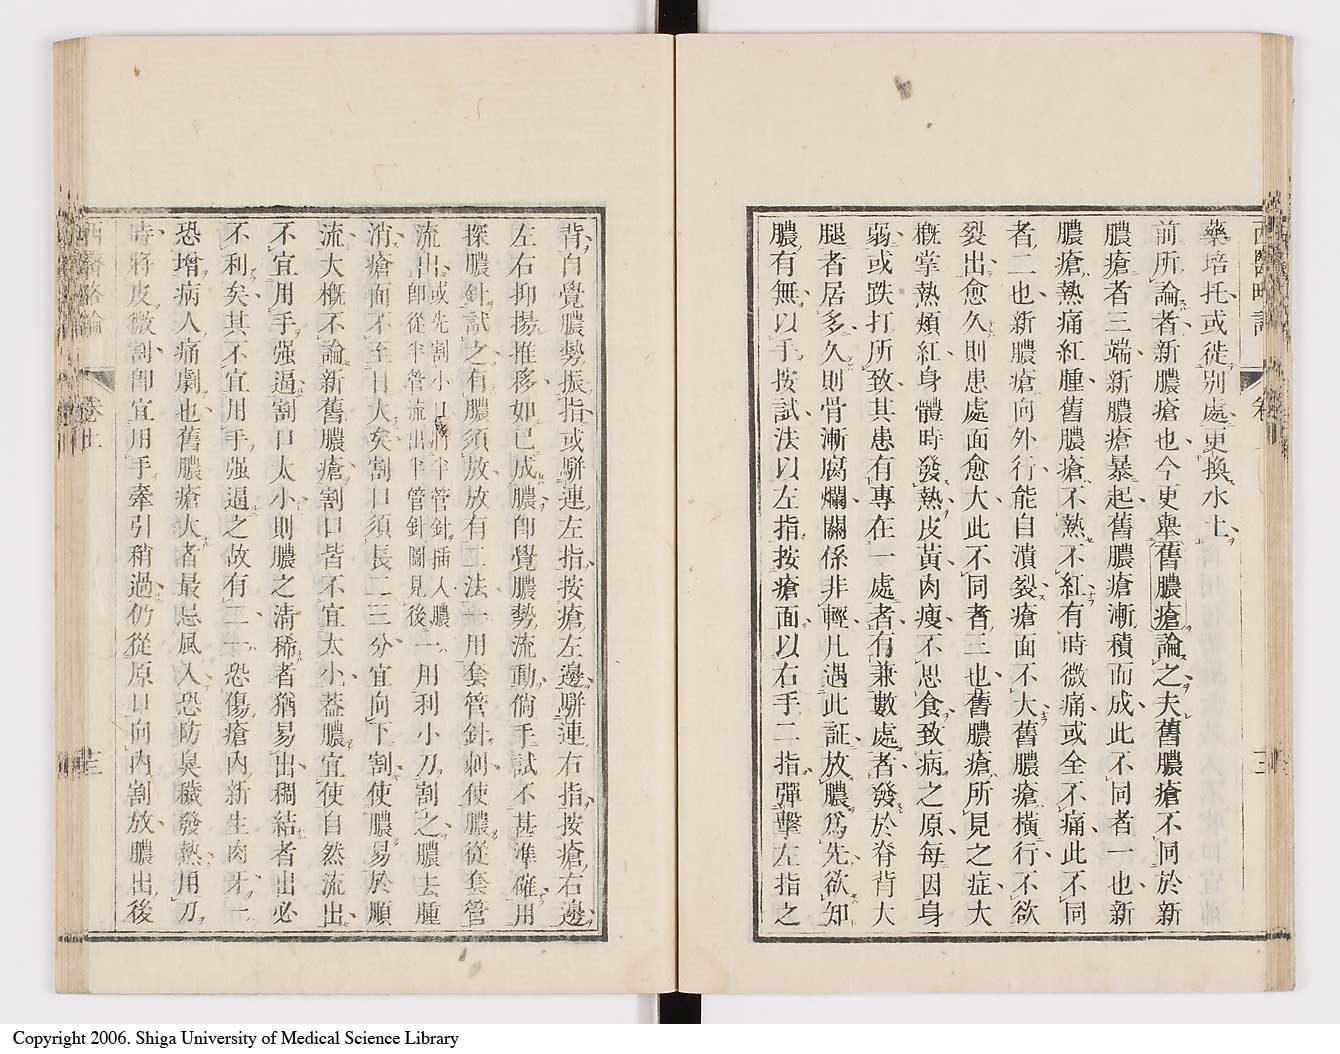 藥培托或徙別處更換水土
前所論者新膿瘡也今更舉舊膿瘡論之夫舊膿瘡不同於新
膿瘡者三端新膿瘡暴起舊膿瘡漸積而成此不同者一也新
膿瘡熱痛紅腫舊膿瘡不熱不紅有時微痛或全不痛此不同
者二也新膿瘡向外行能自潰裂瘡面不大舊膿瘡橫行不欲
裂出愈久則患處面愈大此不同者三也舊膿瘡所見之症大
槪掌熱頰紅身體時發熱皮黃肉瘦不思食致病之原每因身
弱或跌打所致其患有專在一處者有兼數處者發於脊背大
腿者居多久則骨漸腐爛關係非輕凡遇此証放膿爲先欲知
膿有無以手按試法以左指按瘡面以右手二指彈擊左指之
背自覺膿勢振指或駢連左指按瘡左邊駢連右指按瘡右邊
左右抑揚推移如已成膿卽覺膿勢流動倘手試不甚準確用
探膿針試之有膿須放放有二法一用套管針刺使膿從套管
流出或先割小口將半管針插入膿出卽從半管流出半管針圖見後一用利小刀割之膿去腫
消瘡面不至日大矣割口須長二三分宜向下割使膿易於順
流大槪不論新舊膿瘡割口皆不宜太小蓋膿宜使自然流出
不宜用手强逼割口太小則膿之淸稀者猶易出稠結者出必
不利矣其不宜用手强逼之故有二一恐傷瘡內新生肉牙一
恐增病人痛劇也舊膿瘡大者最忌風入恐防臭穢發熱用刀
時將皮微割卽宜用手牽引稍過仍從原口向內割放膿出後
西醫略論
卷上
Copyright 2006. Shiga University of Medical Science Library